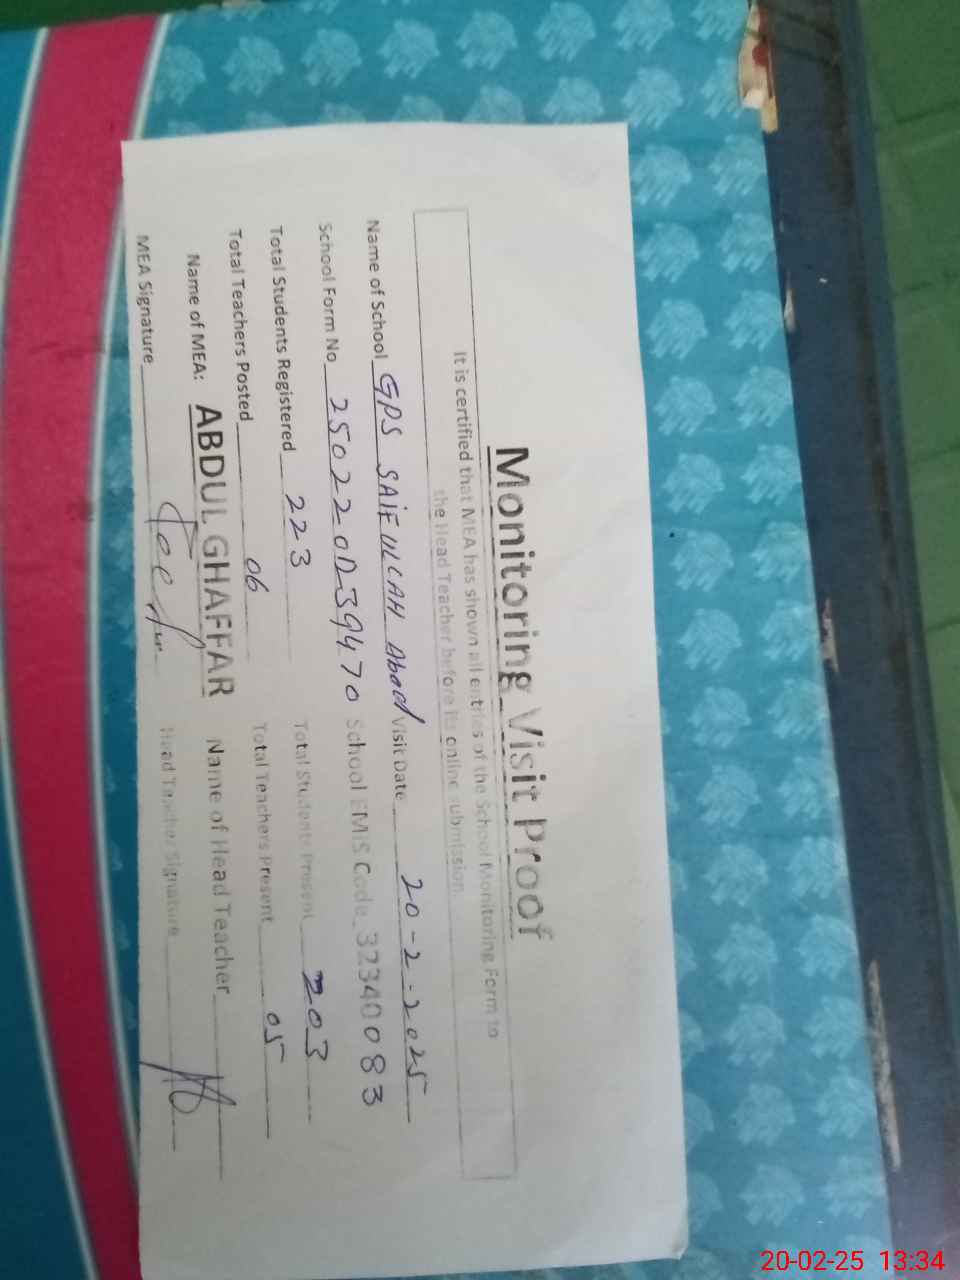 Monitoring Visit Proof
It is certified that MEA has shown all entries of the School Monitoring Form to
the Head Teacher before its online submission.
Name of School GPS SAIFULLAH Abad Visit Date 20-2-2025
School Form No 250220D39470 School EMIS Code 32340083
Total Students Registered 223 Total Students Present 203
Total Teachers Posted 06 Total Teachers Present 05
Name of MEA: ABDUL GHAFFAR Name of Head Teacher
MEA Signature Head Teacher Signature
20-02-25 13:34